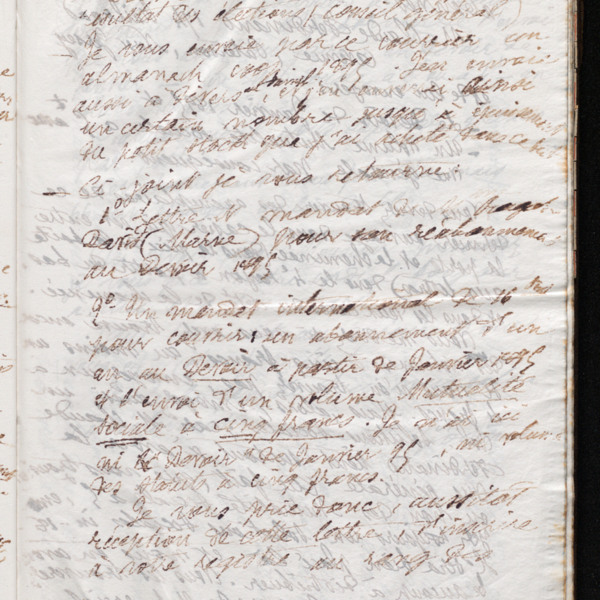 résultat des élections (Conseil général)
Je vous envoie par ce courrier un
almanach coop. 1895. J'en envoie
aussi à et j'en ai ainsi
un certain nombre jusqu'à épuisement
du petit stock que j'ai acheté dans ce but
— Ci-joint je vous retourne :
1º Lettre et mandat de M.
(Marne) pour son réabonnement
au Devoir 1895
2º Un mandat international de 16
pour couvrir un abonnement d'un
an au Devoir à partir de Janvier 1895
et l'envoi d'un volume Mutualité
Sociale à cinq francs. Je n'ai ici
ni le Devoir de Janvier 95, ni volume
des Statuts à cinq francs.
Je vous prie donc, aussitôt
réception de cette lettre, d'inscrire
à votre registre au rang des